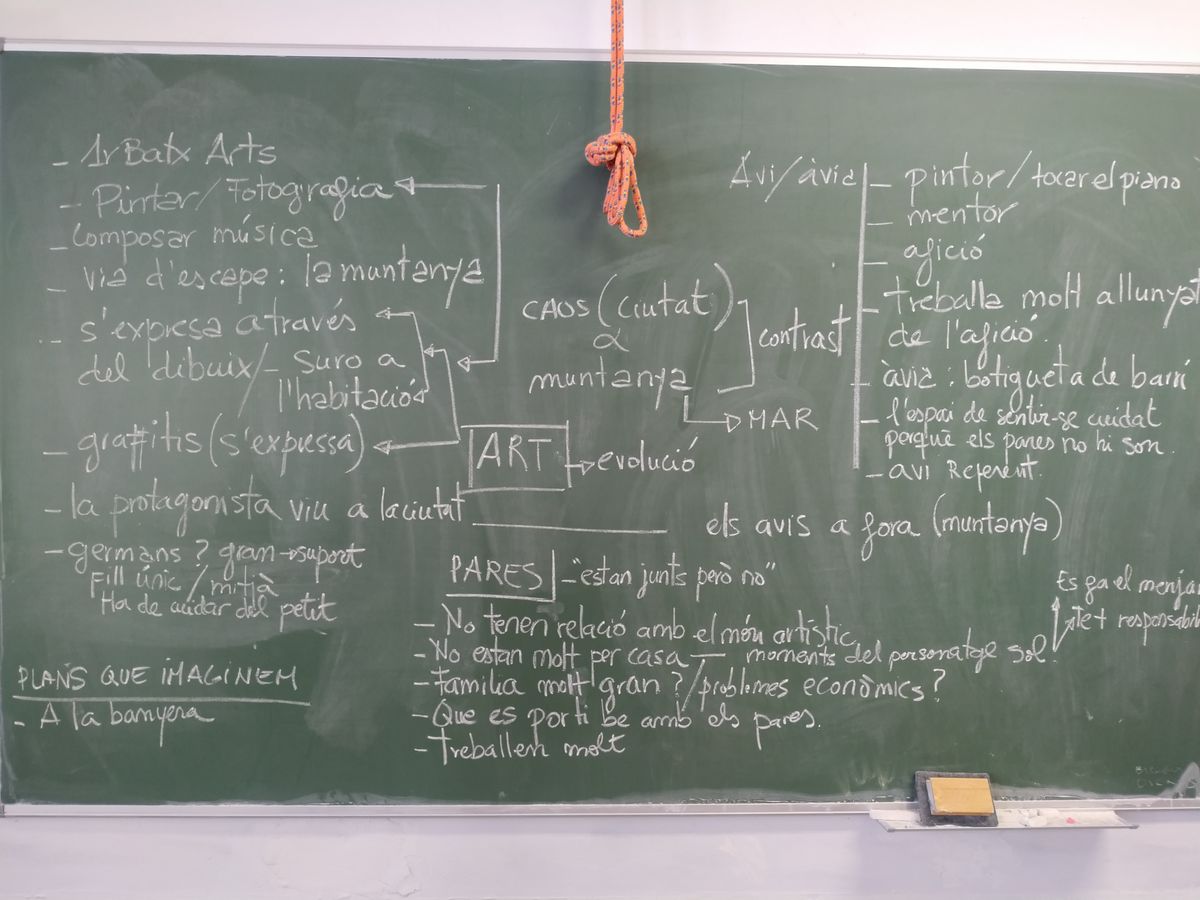 - 1r Batx Arts
- Pintar/Fotografia
- Composar música
- via d'escape: la muntanya
- s'expressa através
del dibuix/- suro a
l'habitació
- graffitis (s'expressa)
- la protagonista viu a la ciutat
els avis a fora (muntanya)
- germans? gran → suport
Fill únic/mitjà
Ha de cuidar del petit
PLANS QUE IMAGINEM
- A la banyera
CAOS (ciutat)
muntanya
contrast
MAR
ART → evolució
PARES - "estan junts però no"
- No tenen relació amb el món artístic
- No estan molt per casa — moments del personatge sol.
- Familia molt gran?/problemes econòmics?
- Que es porti be amb els pares.
- Treballen molt
Es fa el menjar
Té + responsabil
Avi/àvia
- pintor/tocar el piano
- mentor
- afició
- treballa molt allunyat
de l'afició.
- àvia: botigueta de barri
- l'espai de sentir-se cuidat
perquè els pares no hi son.
- avi Referent.